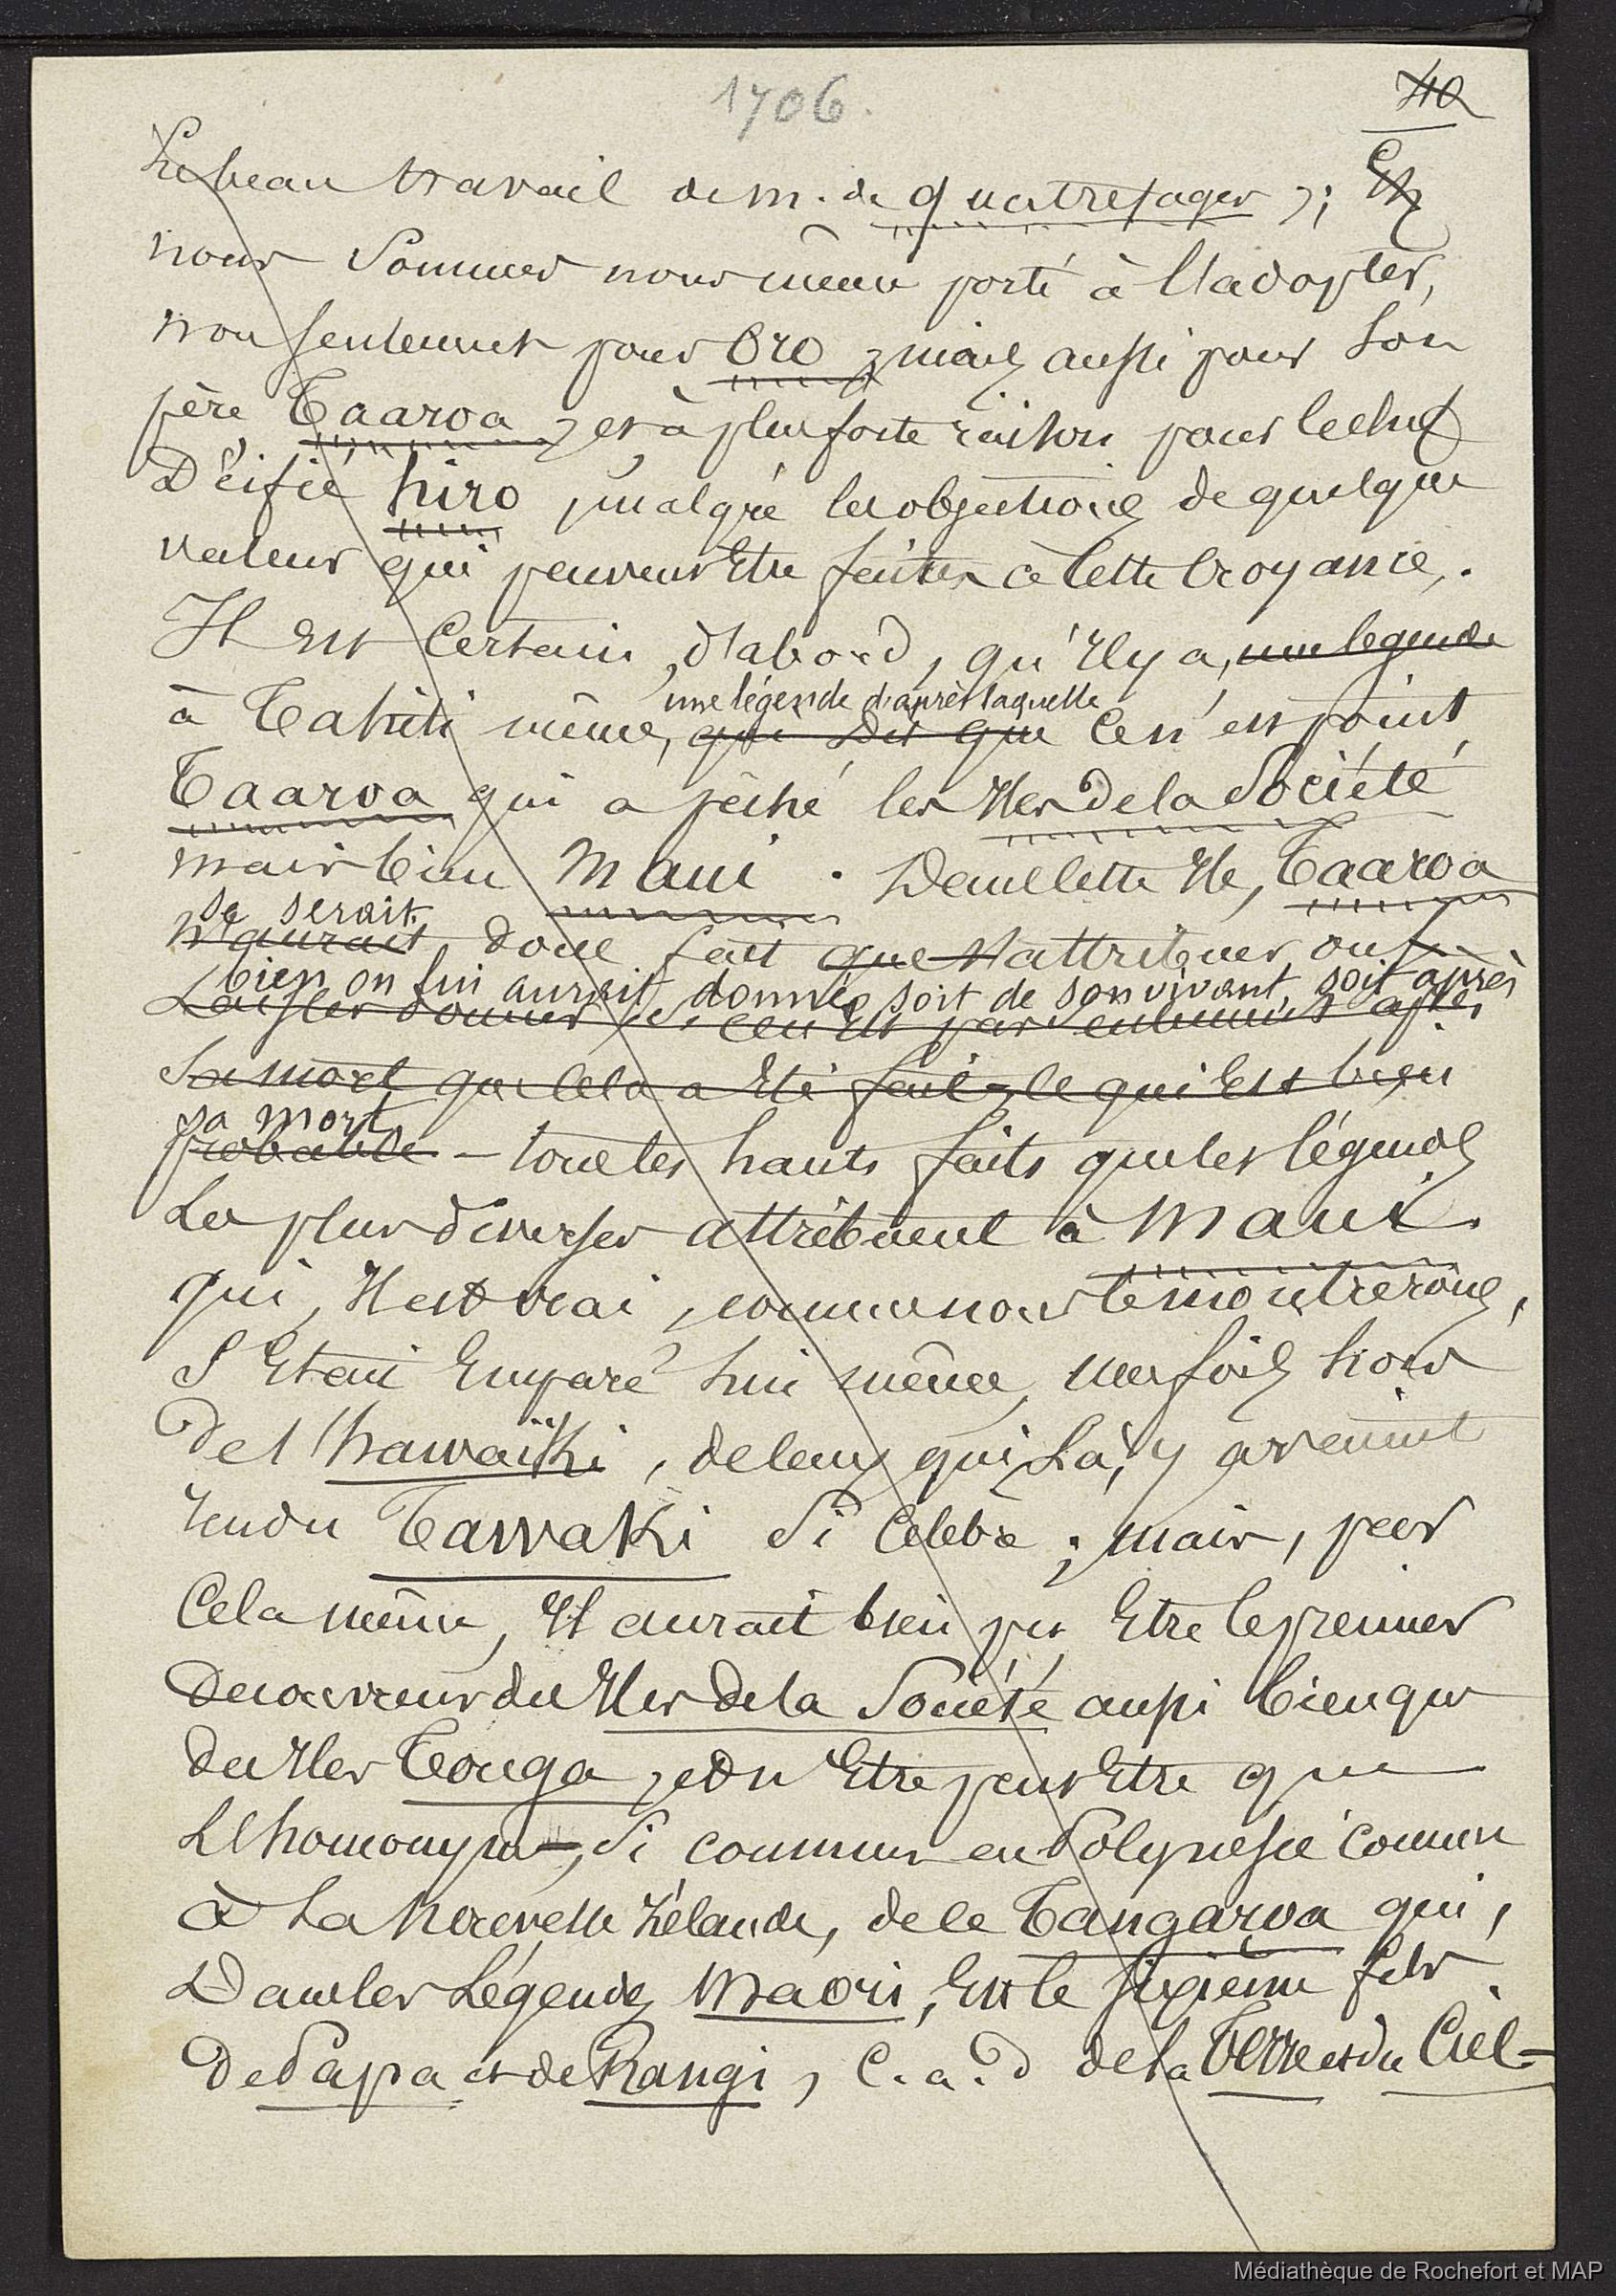 1706.
40
Le beau travail de m. de quatrefages ); Et
nous sommes nous même porté à l'adopter,
non seulement pour Oro, mais aussi pour son
père Taaroa, et à plus forte raison pour le chef
Déifié hiro, malgré les objections de quelque
valeur qui peuvent Etre faites à Cette Croyance.
Il est Certain, d'abord, qu'Il y a, une legende
une légende d'après laquelle
à Tahiti même, qui dit que Ce n'est point
Taaroa qui a pêché les Iles de la Société
mais bien Maui. Dans Cette Ile, Taaroa
se serait
n'aurait, donc fait que s'attribuer, ou
bien on lui aurait donné, soit de son vivant, soit après
Laisser donner, si ce n'est pas seulement après
Sa mort que Cela a Eté fait, Ce qui Est bien
sa mort
probable — tous les hauts faits que les légendes
Les plus diverses attribuent à Maui
qui, Il est vrai, comme nous le montrerons,
S'Etait Emparé lui même, une fois hors
de l'hawaïki, de Ceux qui, Là, y avaient
rendu Tawaki si Célèbre ; mais, par
Cela même, Il aurait bien pu Etre le premier
Découvreur des Iles de la Société aussi bien que
des Iles Tonga, et n'Etre peut Etre que
L'homonyme, si commun en Polynésie comme
à La Nouvelle Zélande, de Ce Tangaroa qui,
Dans les Légendes Maori, Est le sixième fils
De Papa et de Rangi, C. a. d de la Terre et du Ciel —
Médiathèque de Rochefort et MAP